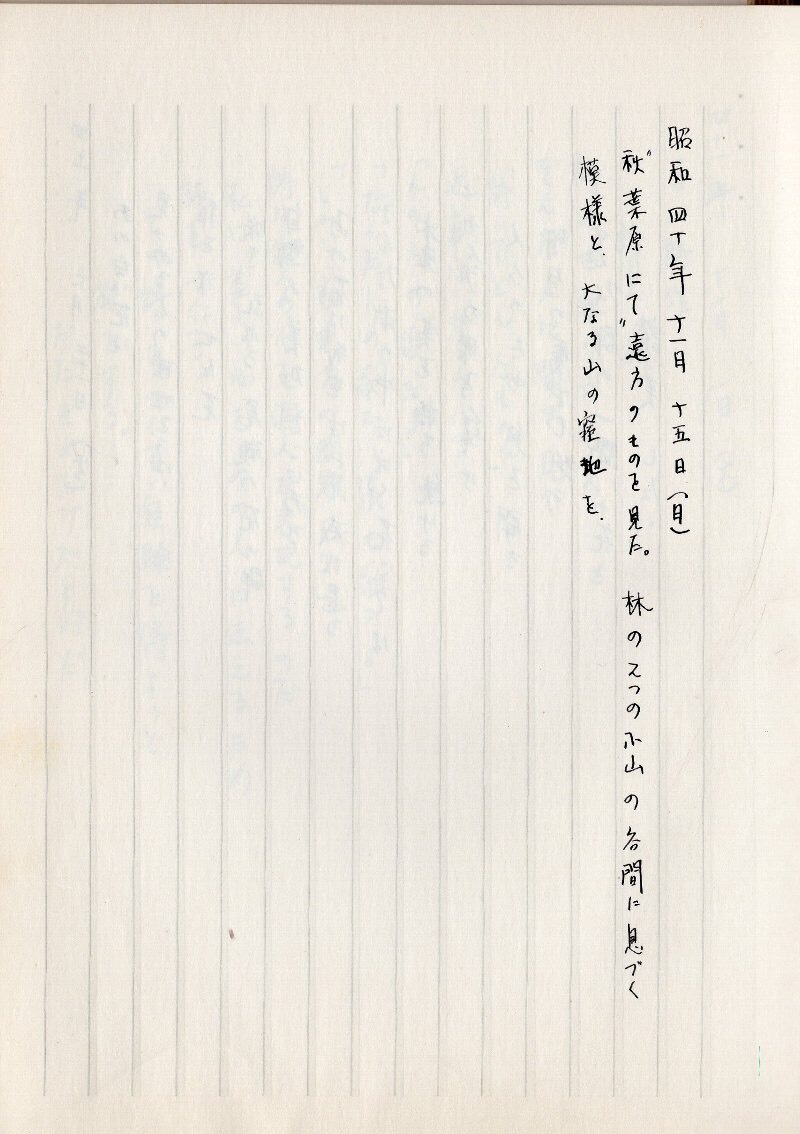 昭和四十年十一月十五日（月）
"秋葉原にて"遠方のものを見た。林の二つの小山の谷間に息づく
模様と、大なる山の窪地を、